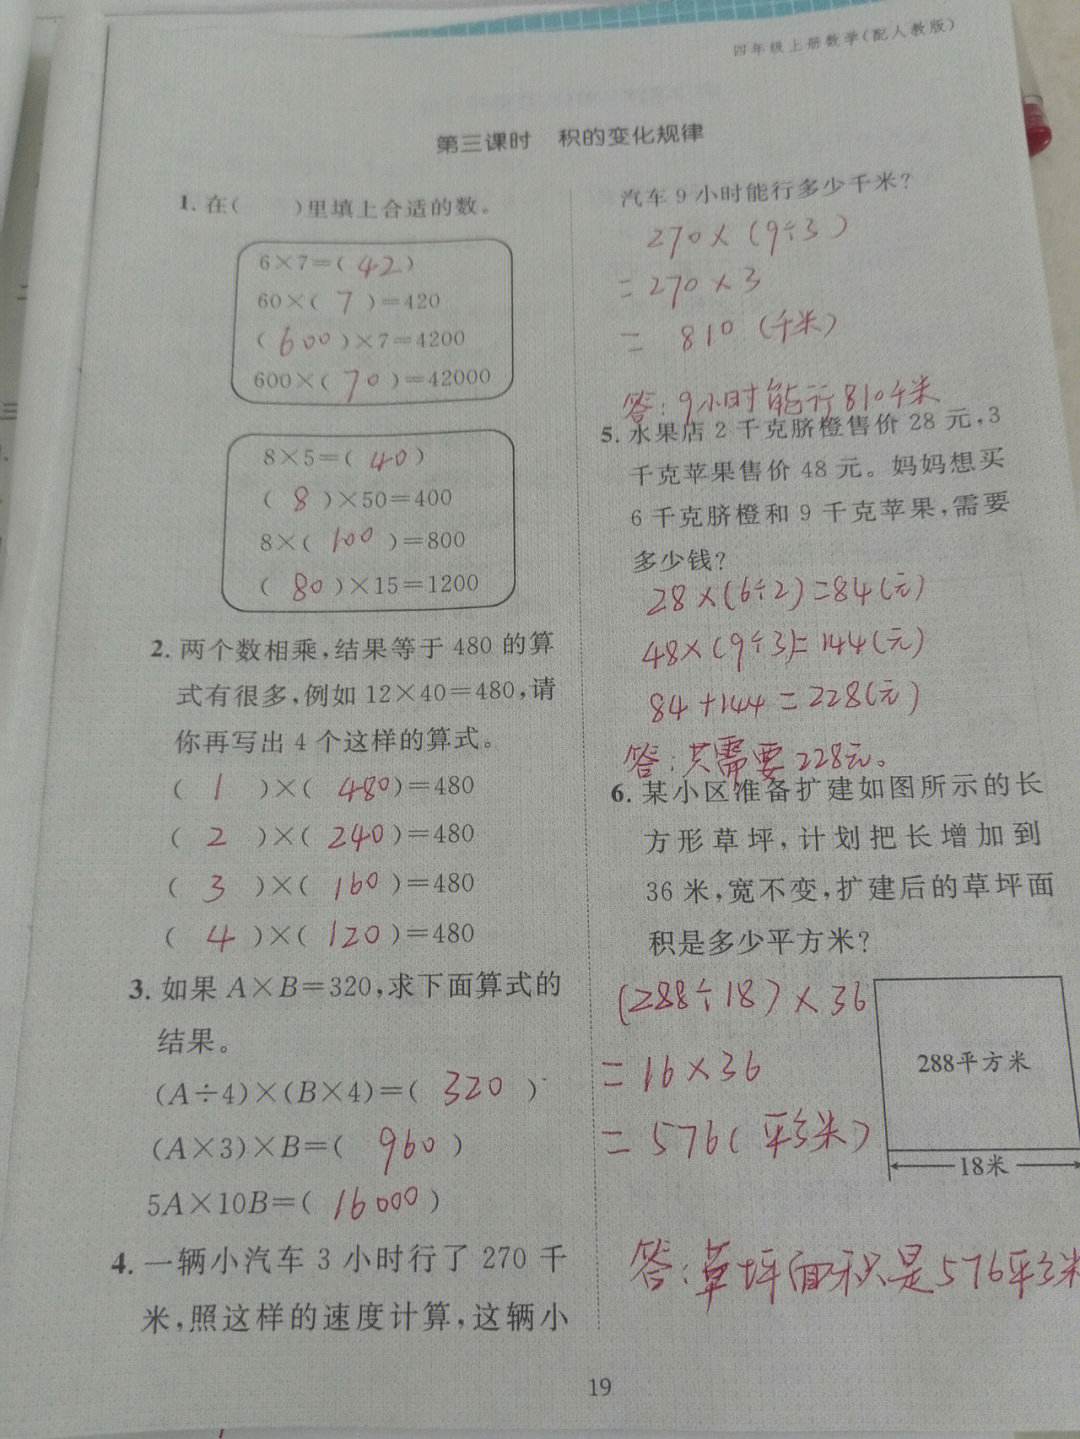 四年级上册数学(配人教版)
第三课时 积的变化规律
1. 在( )里填上合适的数。
6×7=( 42 )
60×( 7 )=420
( 600 )×7=4200
600×( 70 )=42000
8×5=( 40 )
( 8 )×50=400
8×( 100 )=800
( 80 )×15=1200
2. 两个数相乘,结果等于 480 的算
式有很多,例如 12×40=480,请
你再写出 4 个这样的算式。
( 1 )×( 480 )=480
( 2 )×( 240 )=480
( 3 )×( 160 )=480
( 4 )×( 120 )=480
3. 如果 A×B=320,求下面算式的
结果。
(A÷4)×(B×4)=( 320 )
(A×3)×B=( 960 )
5A×10B=( 16000 )
4. 一辆小汽车 3 小时行了 270 千
米,照这样的速度计算,这辆小
汽车 9 小时能行多少千米?
270×(9÷3)
=270×3
=810(千米)
答:9小时能行810千米
5. 水果店 2 千克脐橙售价 28 元,3
千克苹果售价 48 元。妈妈想买
6 千克脐橙和 9 千克苹果,需要
多少钱?
28×(6÷2)=84(元)
48×(9÷3)=144(元)
84+144=228(元)
答:共需要228元。
6. 某小区准备扩建如图所示的长
方形草坪,计划把长增加到
36 米,宽不变,扩建后的草坪面
积是多少平方米?
(288÷18)×36
=16×36
=576(平方米)
288平方米
18米
答:草坪面积是576平方米
19